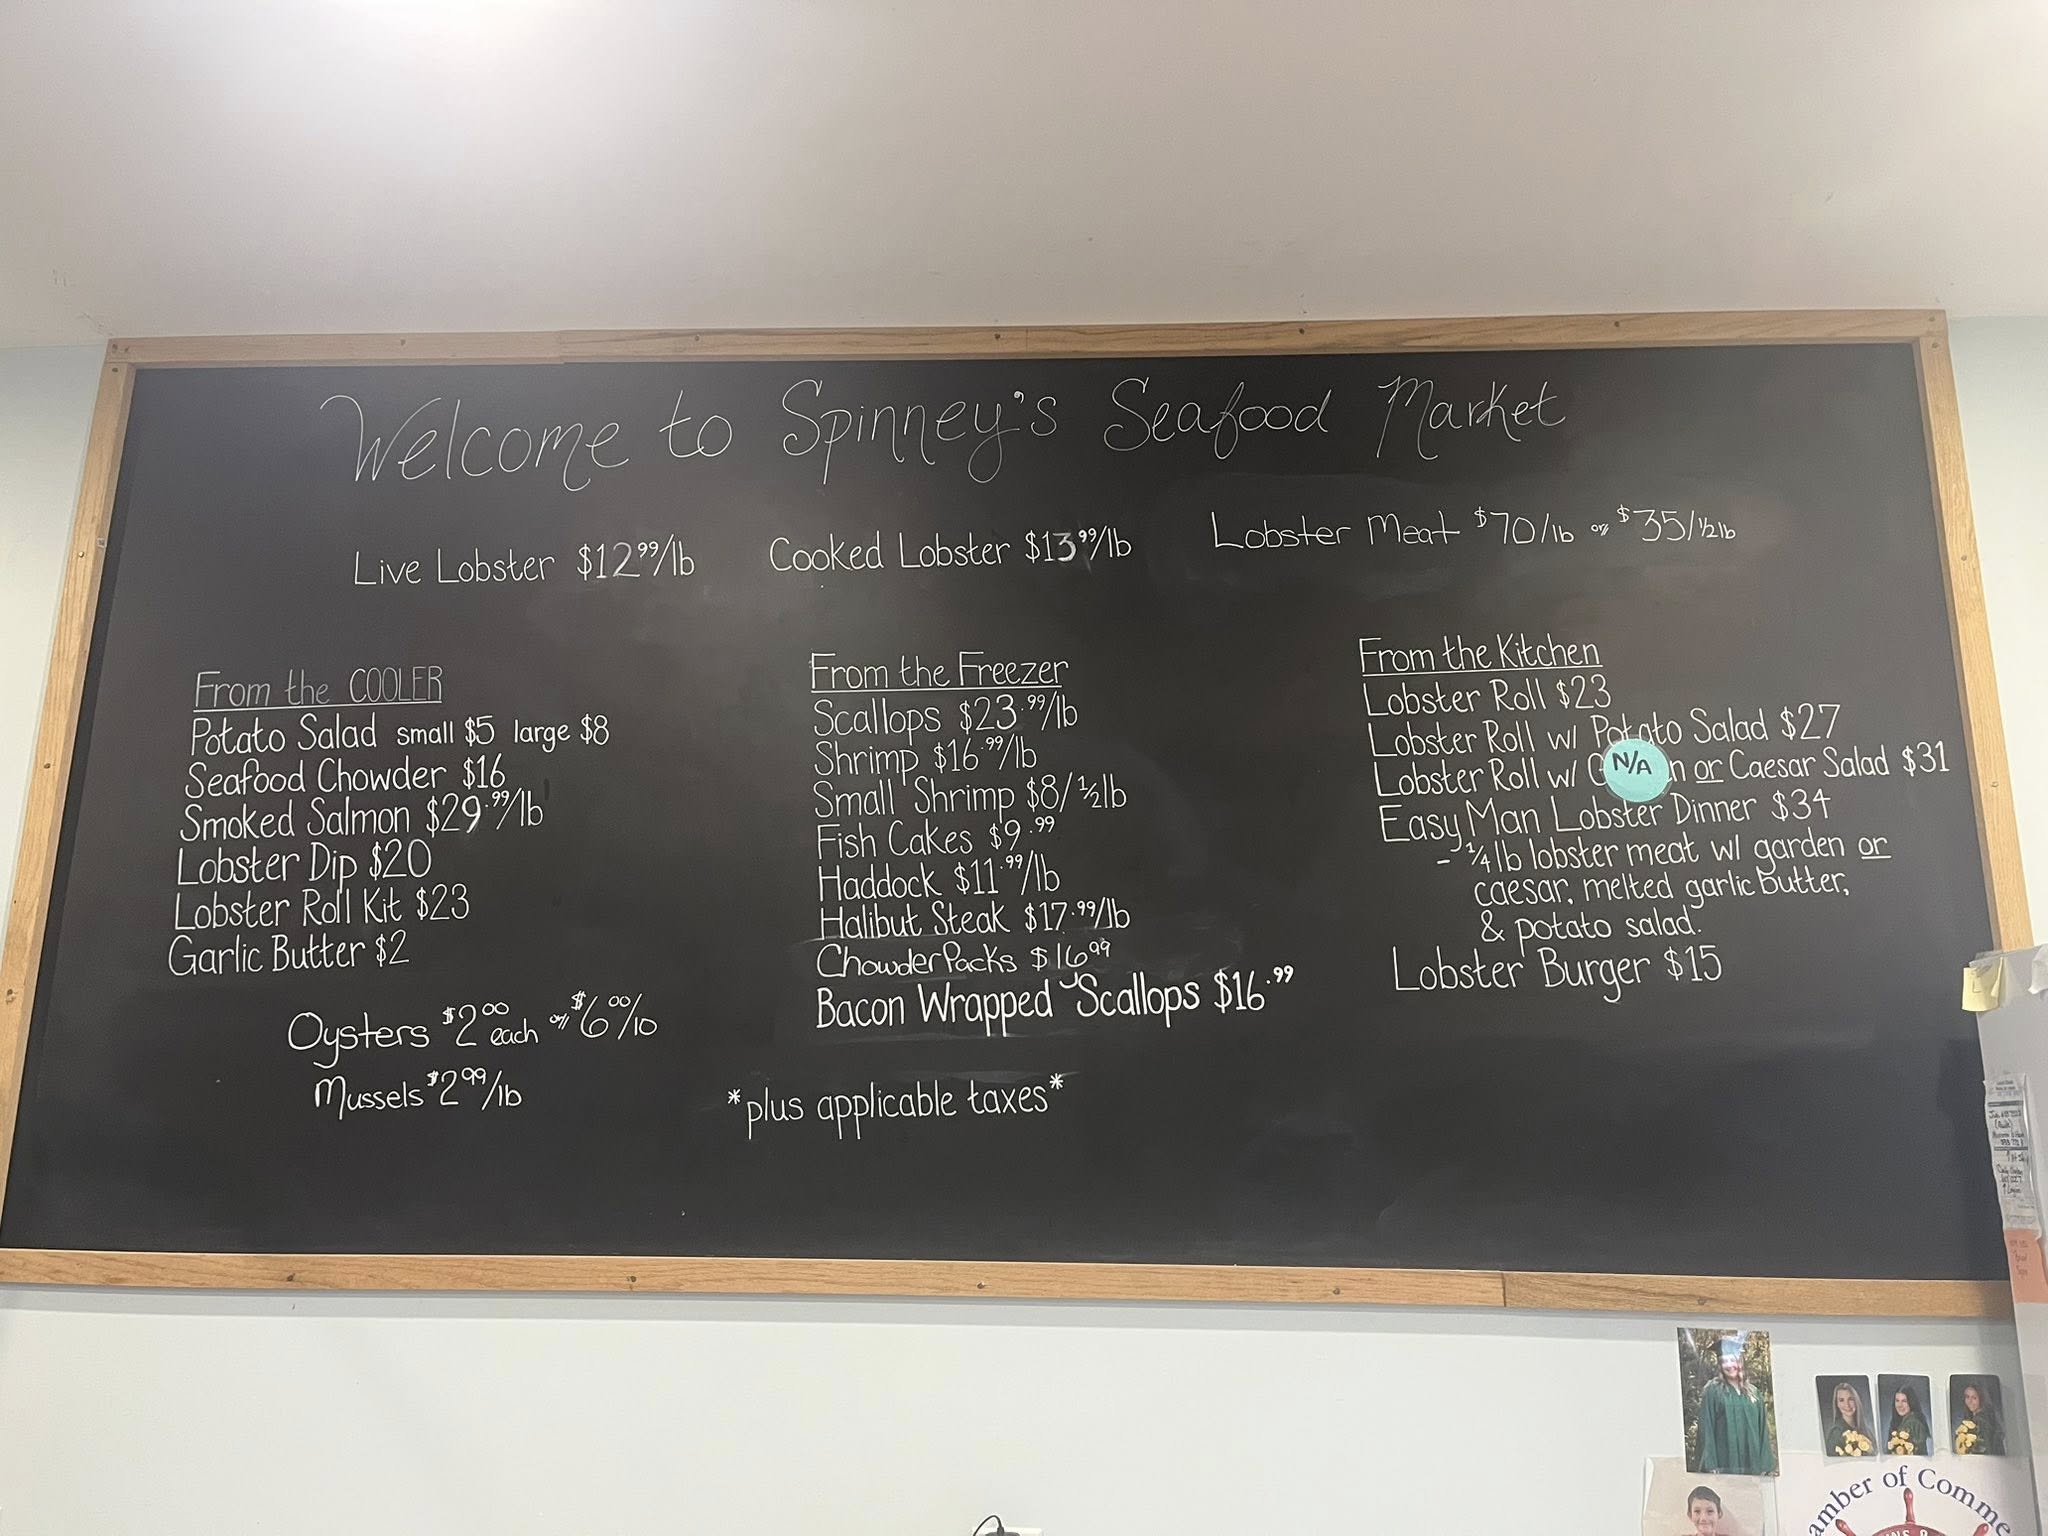 Welcome to Spinney's Seafood Market
Live Lobster $12.99/lb
Cooked Lobster $13.99/lb
Lobster Meat $70/lb or $35/½lb
From the COOLER
Potato Salad small $5 large $8
Seafood Chowder $16
Smoked Salmon $29.99/lb
Lobster Dip $20
Lobster Roll Kit $23
Garlic Butter $2
Oysters $2.00 each or $6.00/10
Mussels $2.99/lb
From the Freezer
Scallops $23.99/lb
Shrimp $16.99/lb
Small Shrimp $8/½lb
Fish Cakes $9.99
Haddock $11.99/lb
Halibut Steak $17.99/lb
Chowder Packs $16.99
Bacon Wrapped Scallops $16.99
*plus applicable taxes*
From the Kitchen
Lobster Roll $23
Lobster Roll w/ Potato Salad $27
Lobster Roll w/ N/A or Caesar Salad $31
Easy Man Lobster Dinner $34
- ¼lb lobster meat w/ garden or
caesar, melted garlic butter,
& potato salad.
Lobster Burger $15
of Comme